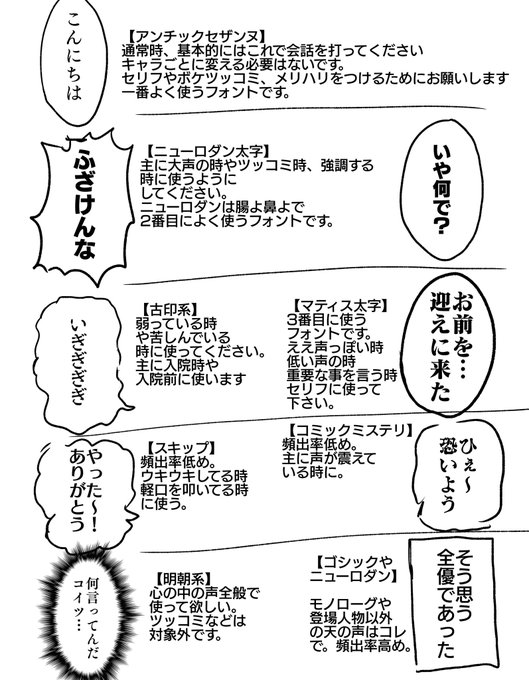 こんにちは
【アンチックセザンヌ】
通常時、基本的にはこれで会話を打ってください
キャラごとに変える必要はないです。
セリフやボケツッコミ、メリハリをつけるためにお願いします
一番よく使うフォントです。
ふざけんな
【ニューロダン太字】
主に大声の時やツッコミ時、強調する
時に使うように
してください。
ニューロダンは腸よ鼻よで
2番目によく使うフォントです。
いや何で?
いぎぎぎぎ
【古印系】
弱っている時
や苦しんでいる
時に使ってください。
主に入院時や
入院前に使います
【マティス太字】
3番目に使う
フォントです。
ええ声っぽい時
低い声の時
重要な事を言う時
セリフに使って
下さい。
お前を…
迎えに来た
やった〜!
ありがとう
【スキップ】
頻出率低め。
ウキウキしてる時
軽口を叩いてる時
に使う。
【コミックミステリ】
頻出率低め。
主に声が震えて
いる時に。
ひぇ〜
恐いよう
何言ってんだ
コイツ…
【明朝系】
心の中の声全般で
使って欲しい。
ツッコミなどは
対象外です。
【ゴシックや
ニューロダン】
モノローグや
登場人物以外
の天の声はコレ
で。頻出率高め。
そう思う
全優であった